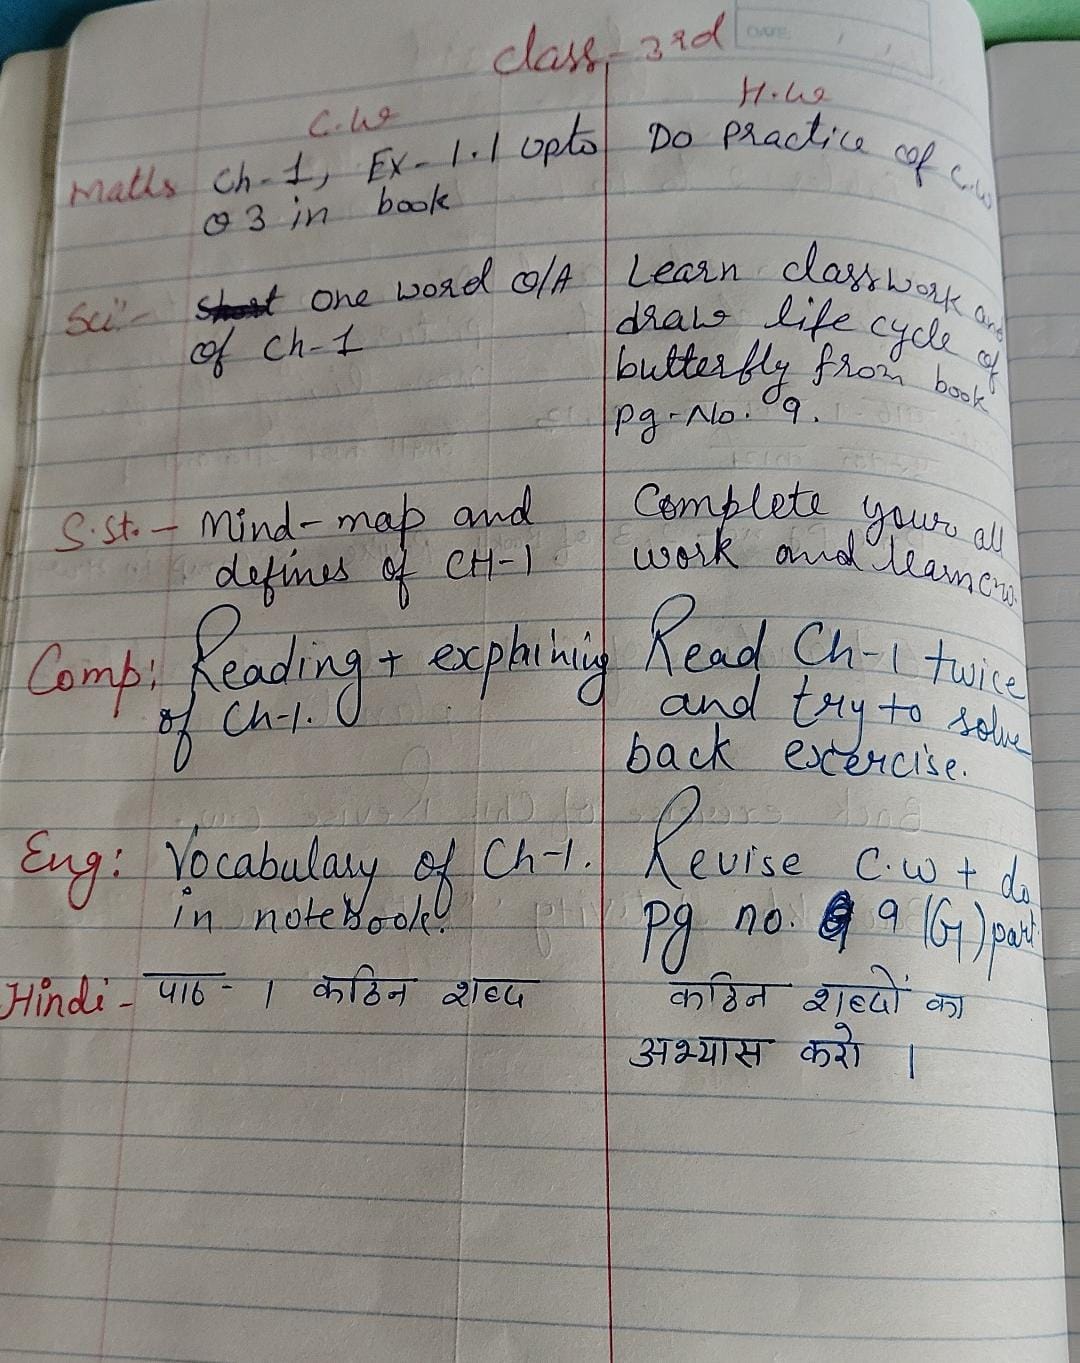 Class - 3rd
DATE:
C.W
H.W
Maths Ch-1, Ex-1.1 upto
Q3 in book
Do Practice of C.W
Sci:- Short One word Q/A
of Ch-1
Learn classwork and
draw life cycle of
butterfly from book
pg-No. 9.
S.St. - Mind-map and
defines of CH-1
Complete your all
work and learn
Comp: Reading + explaining
of Ch-1.
Read Ch-1 twice
and try to solve
back exercise.
Eng: Vocabulary of Ch-1.
in notebook.
Revise C.W + do
pg no. 9 (G) part
Hindi - पाठ - 1 कठिन शब्द
कठिन शब्दों का
अभ्यास करो ।